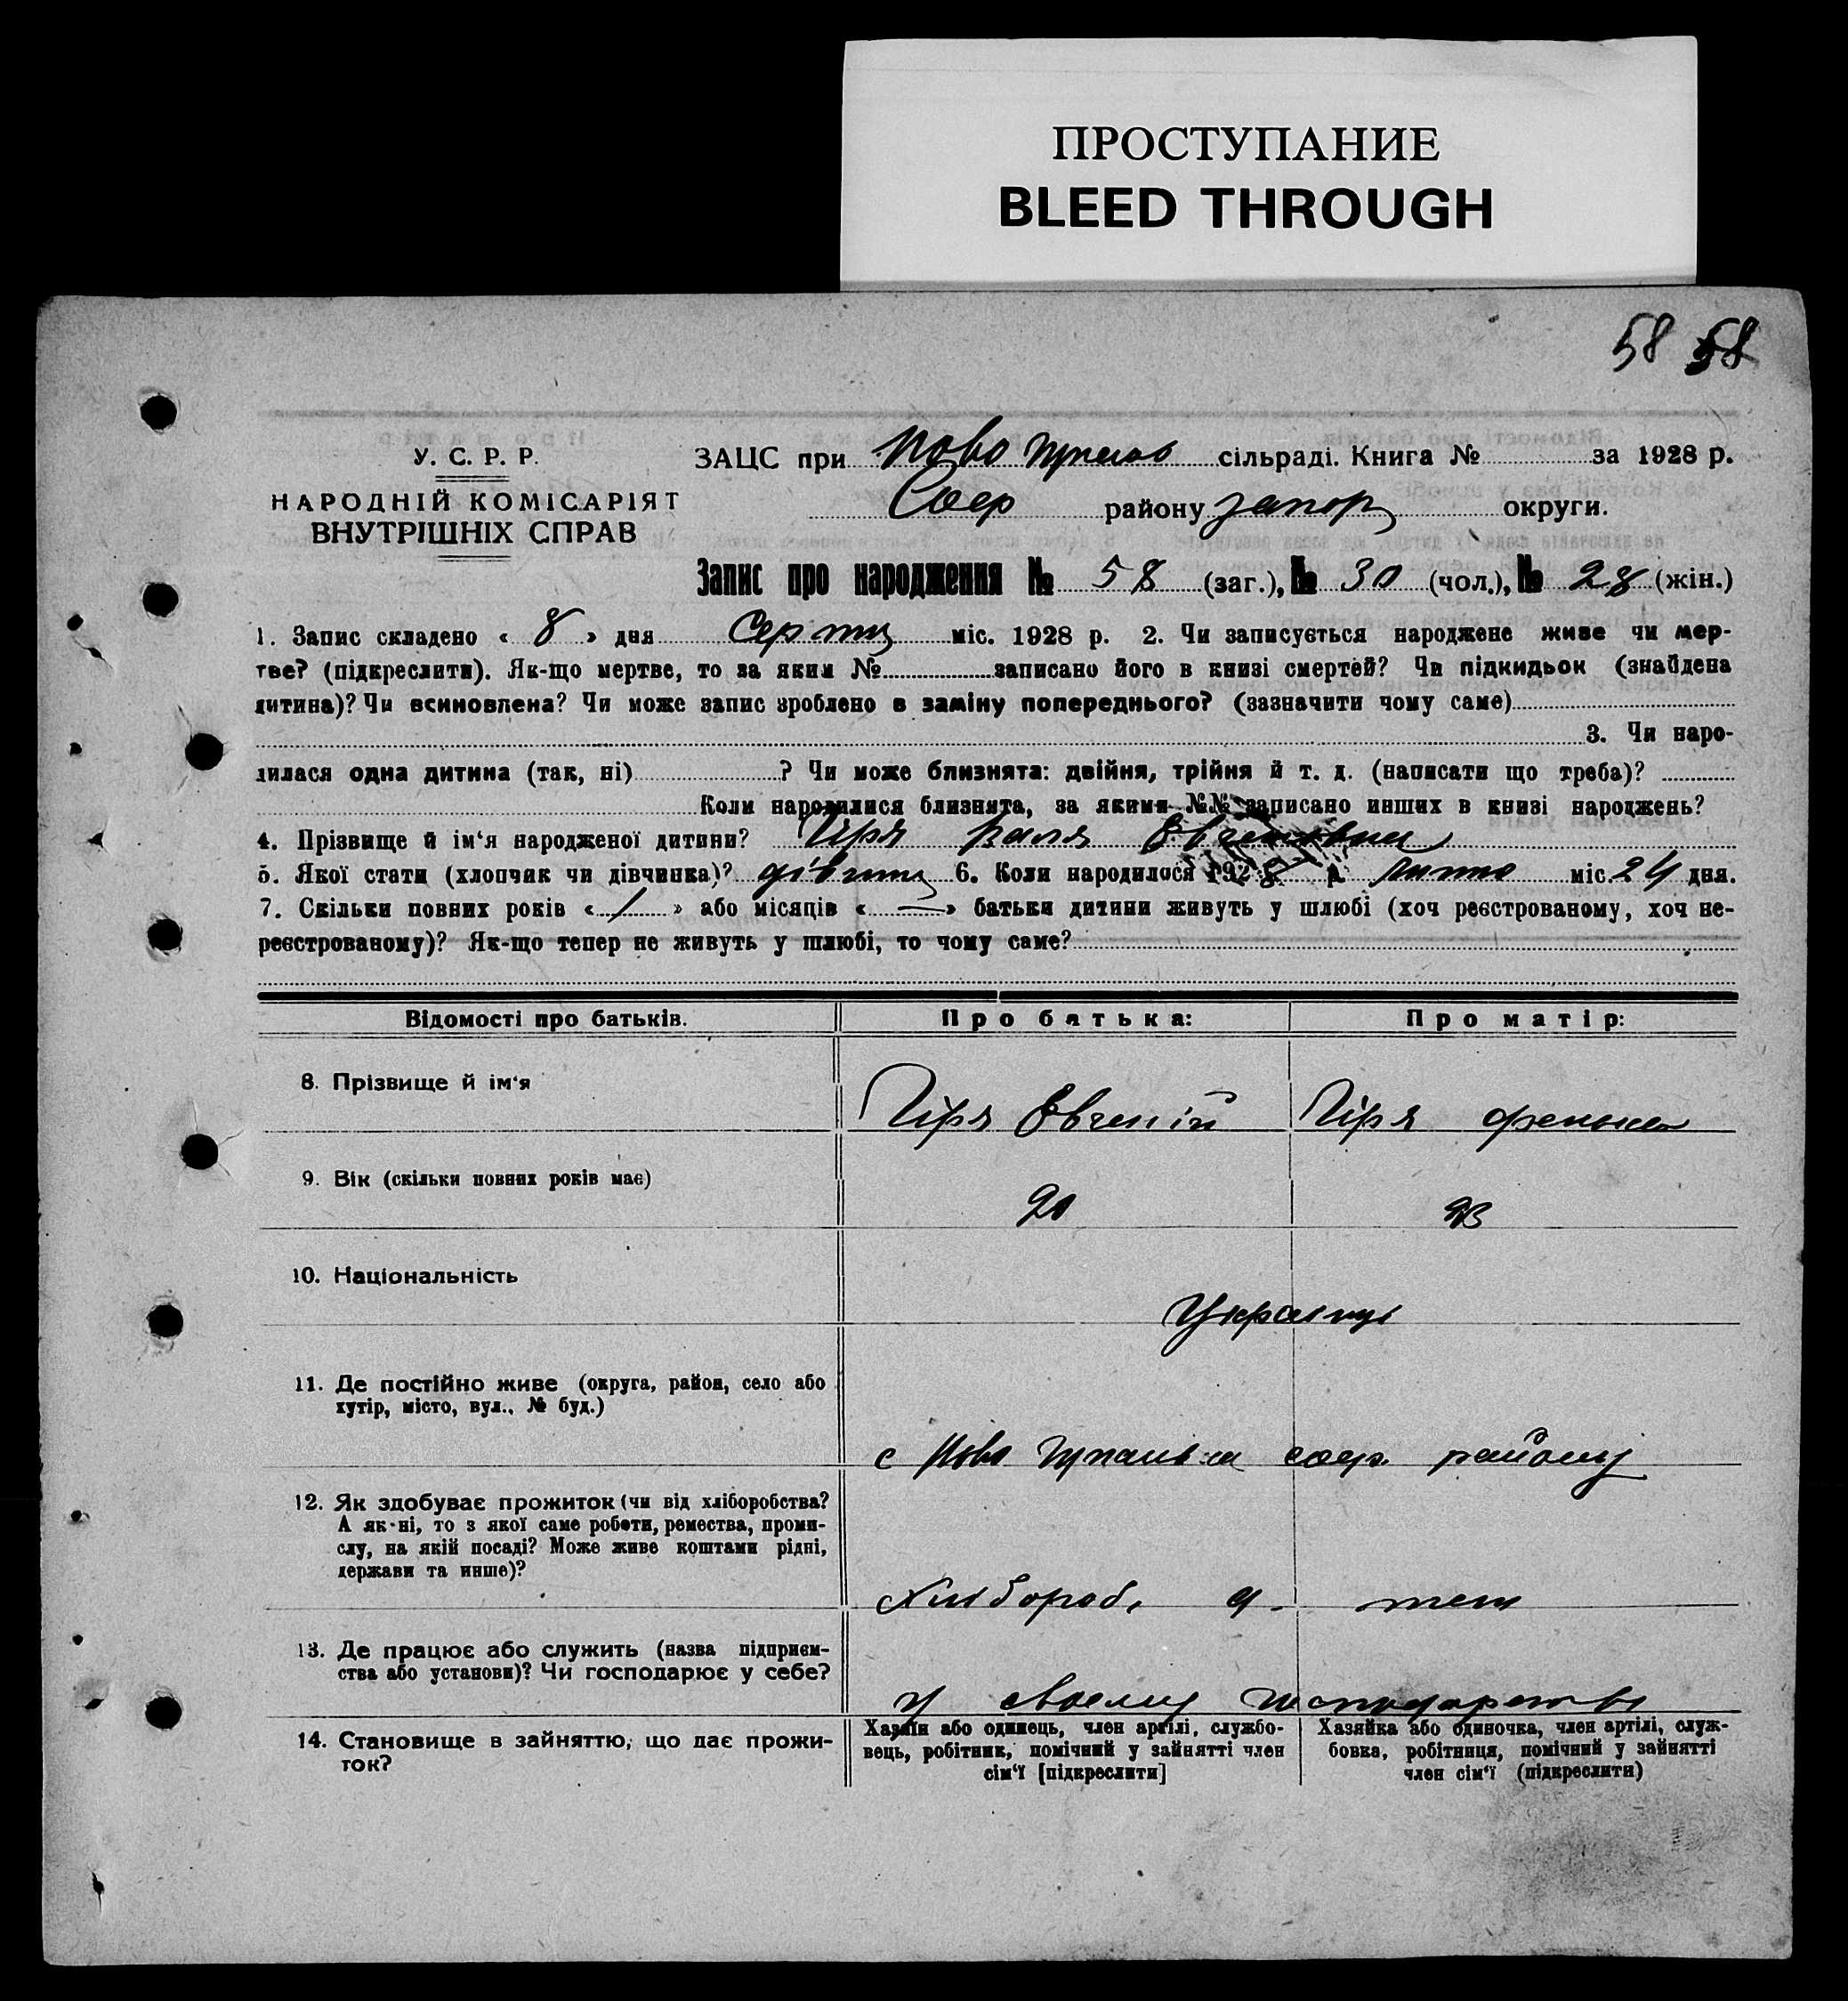 ПРОСТУПАНИЕ
BLEED THROUGH
58 58
У. С. Р. Р.
НАРОДНІЙ КОМІСАРІЯТ
ВНУТРІШНІХ СПРАВ
ЗАЦС при Ново сільраді. Книга № за 1928 р.
району запор округи.
Запис про народження № 58 (заг.), № 30 (чол.), № 28 (жін.)
1. Запис складено « 8 » дня Серпня міс. 1928 р. 2. Чи записується народжене живе чи мер-
тве? (підкреслити). Як-що мертве, то за яким № записано його в книзі смертей? Чи підкидьок (знайдена
дитина)? Чи всиновлена? Чи може запис зроблено в заміну попереднього? (зазначити чому саме)
3. Чи наро-
дилася одна дитина (так, ні) ? Чи може близнята: двійня, трійня й т. д. (написати що треба)?
Коли народилися близнята, за якими №№ записано инших в книзі народжень?
4. Прізвище й ім‘я народженої дитини? Гіря Валя Евгеновна
5. Якої стати (хлопчик чи дівчинка)? дівчина 6. Коли народилося 1928 р. міс. 24 дня.
7. Скільки повних років « 1 » або місяців « — » батьки дитини живуть у шлюбі (хоч реєстрованому, хоч не-
реєстрованому)? Як-що тепер не живуть у шлюбі, то чому саме?
Відомості про батьків. Про батька: Про матір:
8. Прізвище й ім‘я
Гіря Евгеній Гіря
9. Вік (скільки повних років має)
20
10. Національність
Українці
11. Де постійно живе (округа, район, село або
хутір, місто, вул., № буд.)
с Ново району
12. Як здобуває прожиток (чи від хліборобства?
А як-ні, то з якої саме роботи, ремества, проми-
слу, на якій посаді? Може живе коштами рідні,
держави та инше)?
Хлібороб
13. Де працює або служить (назва підприєм-
ства або установи)? Чи господарює у себе?
У своєму господарстві
14. Становище в зайняттю, що дає прожи-
ток?
Хазяїн або одинець, член артілі, службо-
вець, робітник, помічний у зайнятті член
сім‘ї [підкреслити]
Хазяйка або одиночка, член артілі, служ-
бовка, робітниця, помічний у зайнятті
член сім‘ї (підкреслити)